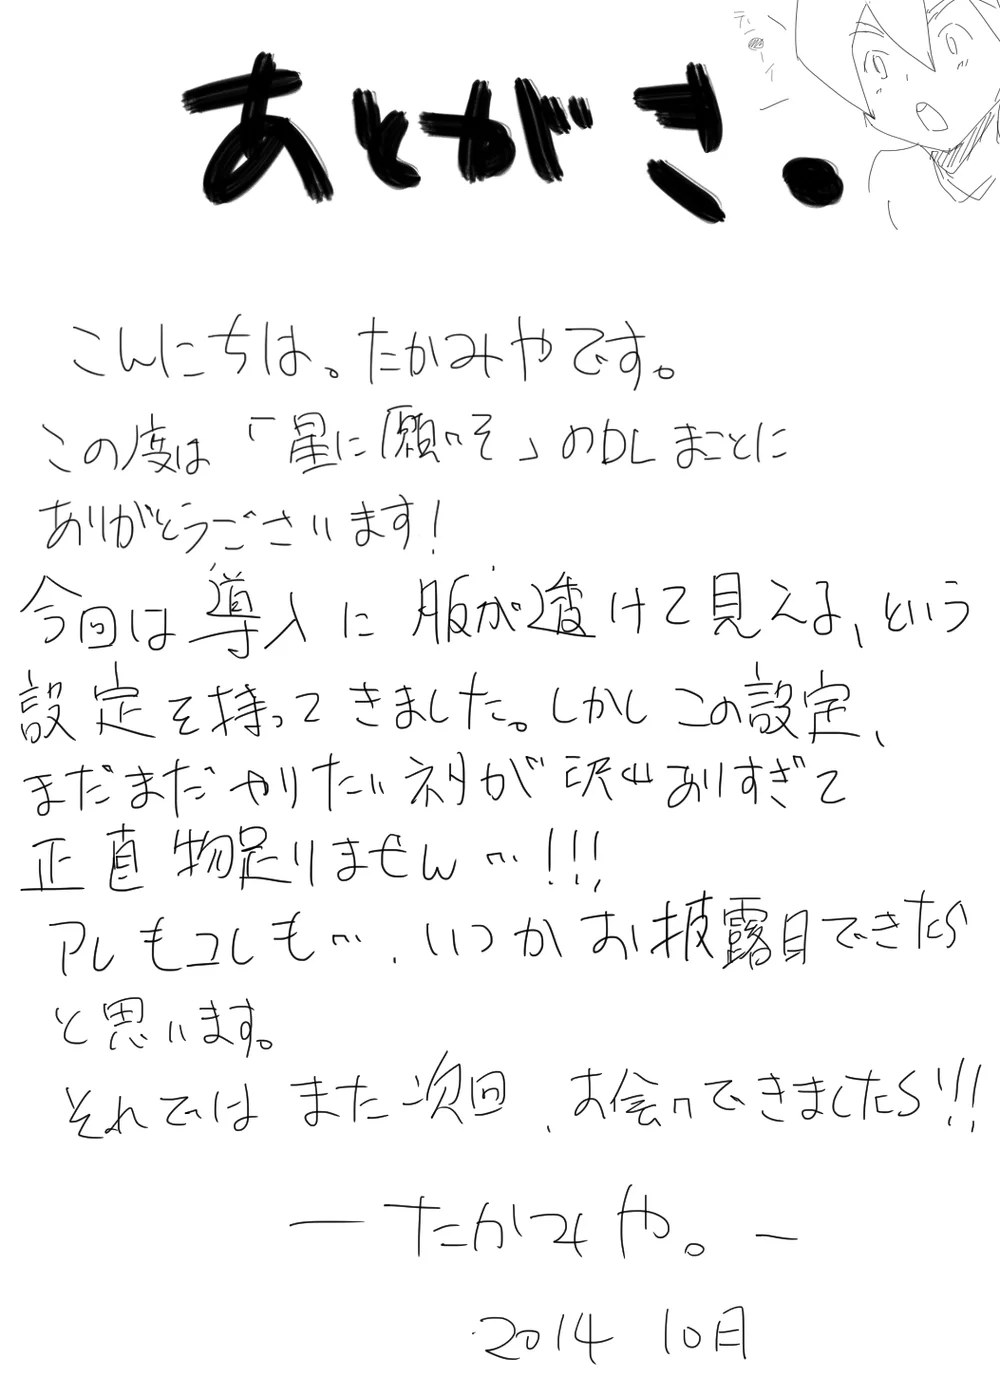 あとがき.
こんにちは。たかみやです。
この度は「星に願いを」のDLまことに
ありがとうございます!
今回は導入に服が透けて見える、という
設定を持ってきました。しかしこの設定、
まだまだやりたいネタが沢山ありすぎて
正直物足りません…!!!
アレもコレも…、いつかお披露目できたら
と思います。
それではまた次回、お会いできましたら!!!
―たかみや。―
2014 10月